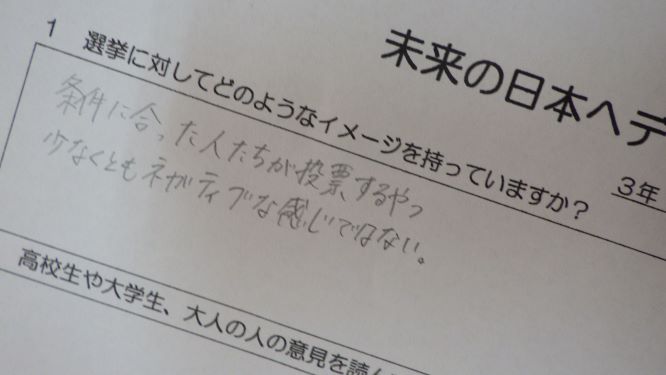 未来の日本へデ
3年
1 選挙に対してどのようなイメージを持っていますか？
条件に合った人たちが投票するやつ
少なくともネガティブな感じではない。
高校生や大学生、大人の人の意見を読ん